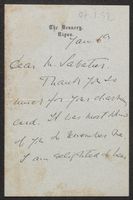 The Deanery,
Ripon.
Jan 6
Dear Mr
Thank you so
much for your charming
card. It was most kind
of you to remember me
I am delighted to hear